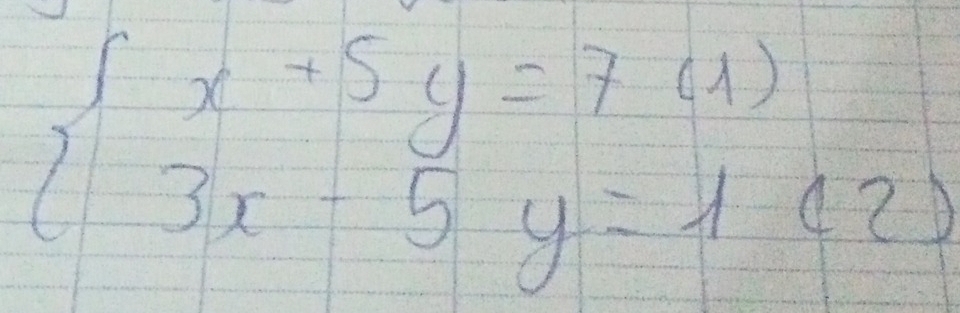 { x + 5y = 7 (1)
3x - 5y = 1 (2)